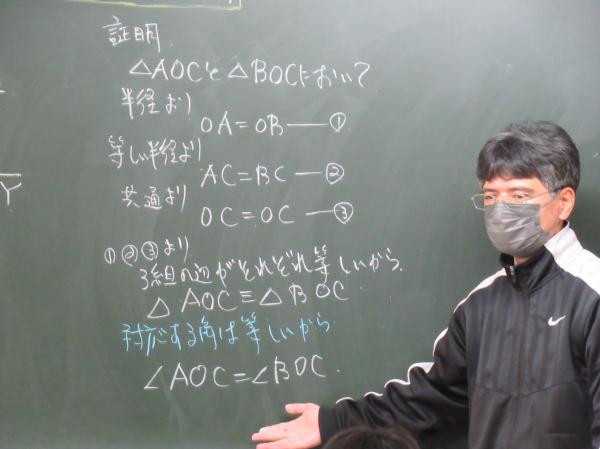 証明.
△AOCと△BOCにおいて
半径より
OA=OB——①
等しい半径より
AC=BC——②
共通より
OC=OC——③
①②③より
3組の辺がそれぞれ等しいから.
△AOC≡△BOC
対応する角は等しいから.
∠AOC=∠BOC.
Y